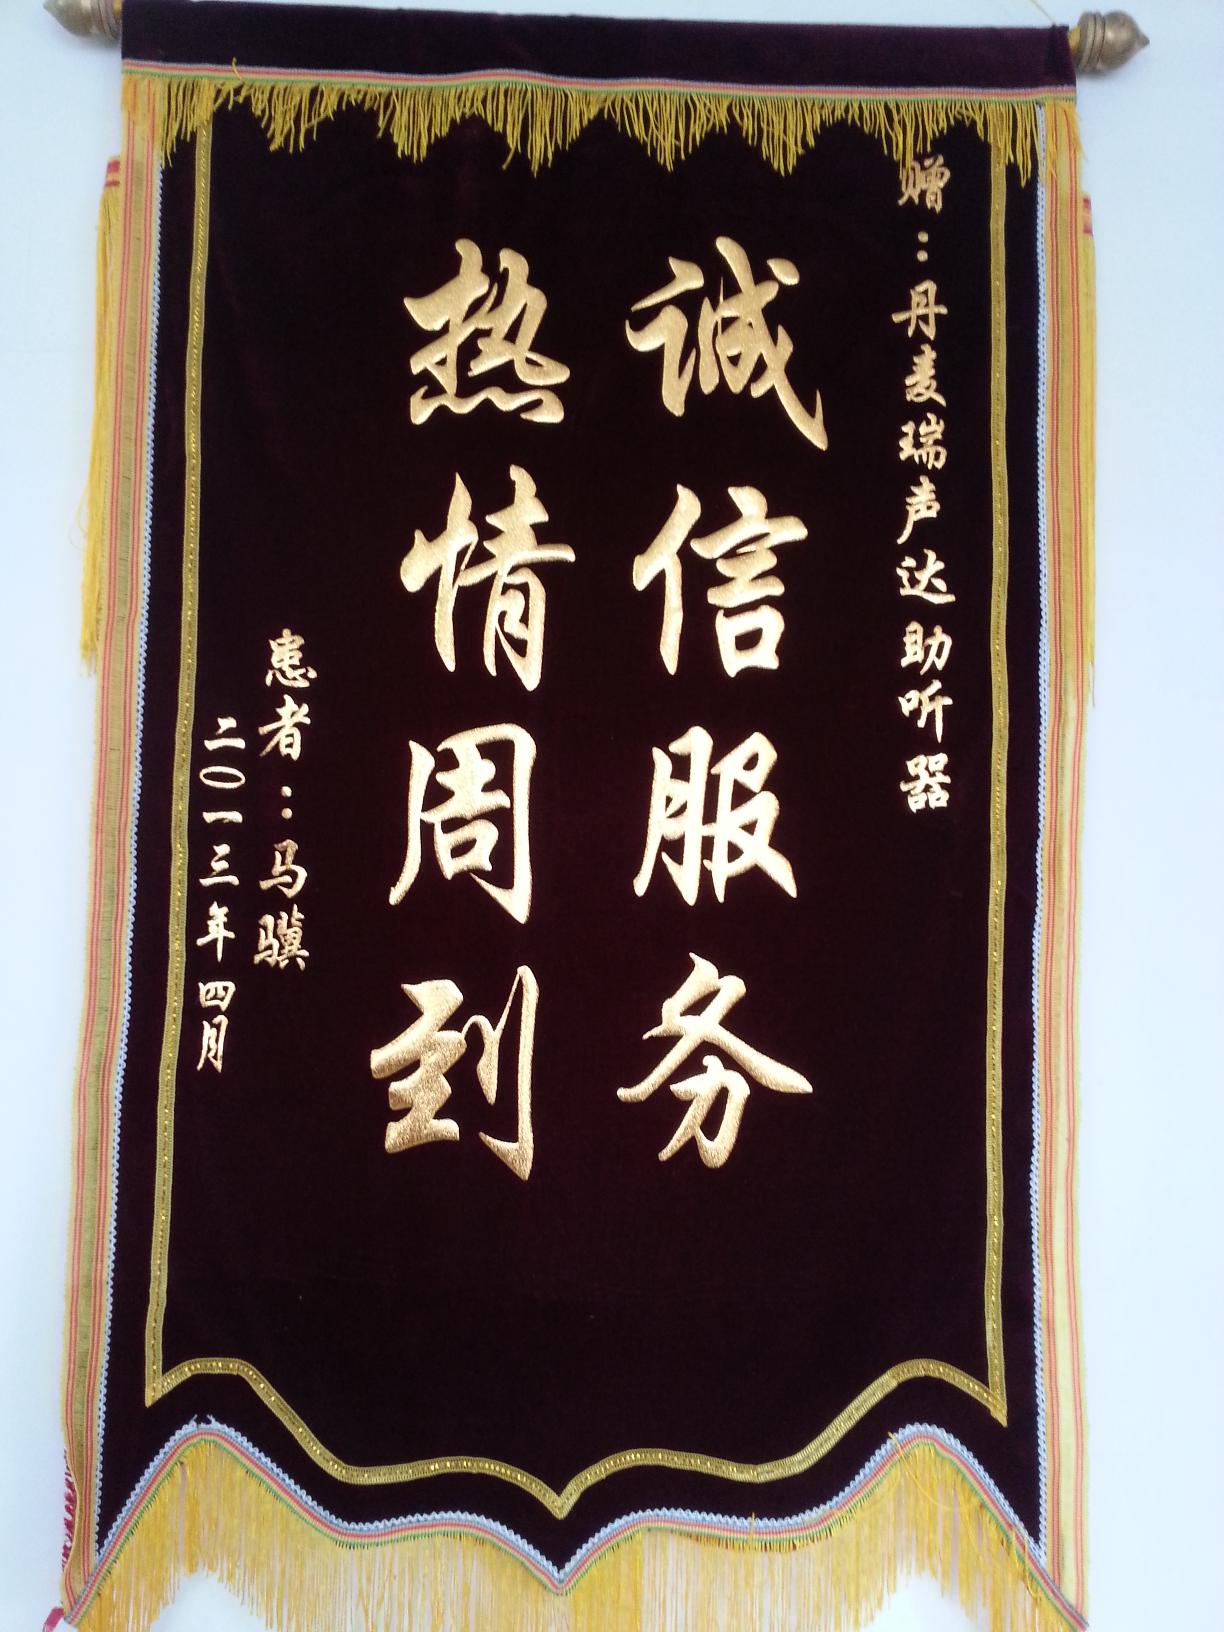 赠：丹麦瑞声达助听器
诚信服务
热情周到
患者：马骥
二〇一三年四月